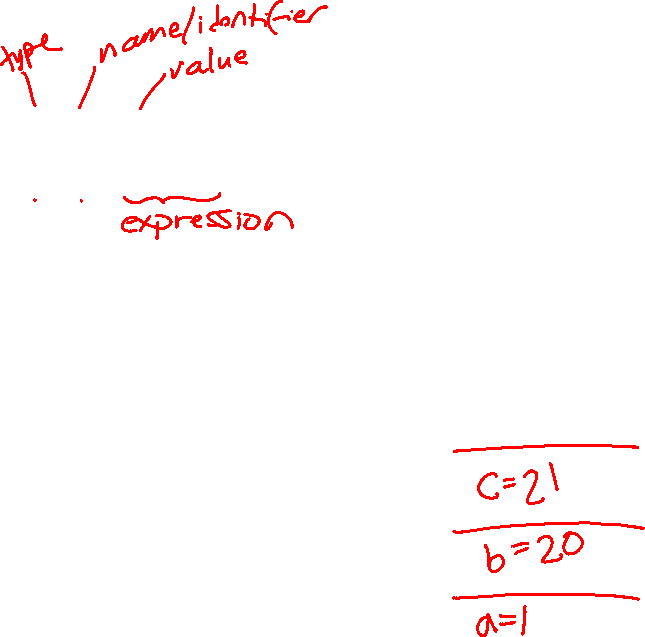 type name/identifier
value
expression
c=21
b=20
a=1